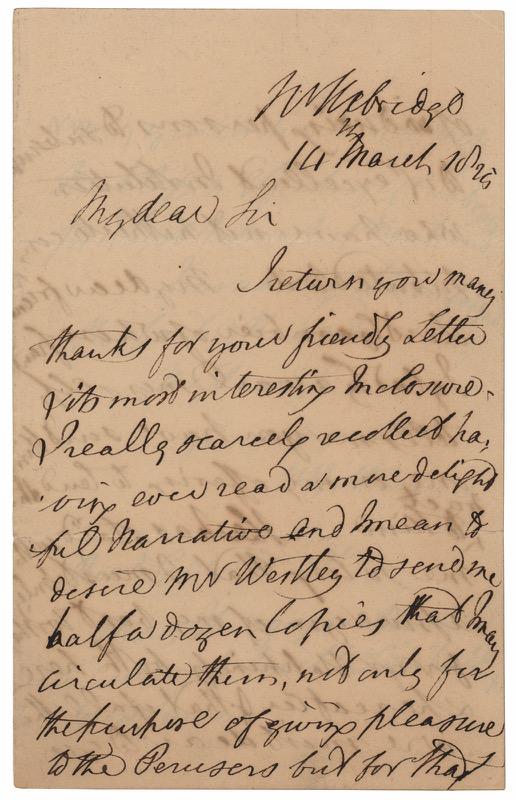 14th March 18
My dear Sir
I return you many
thanks for your friendly Letter
& its most interesting Inclosure.
I really scarcely recollect ha,
ving ever read a more delight
ful Narrative and I mean to
desire Mr Westley to send me
half a dozen Copies that I may
circulate them, not only for
the purpose of giving pleasure
to the Perusers but for that